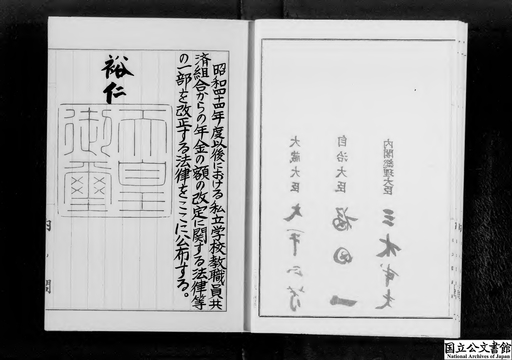 内閣総理大臣 三木武夫
自治大臣 福田一
大蔵大臣 大平正芳
昭和四十四年度以後における私立学校教職員共
済組合からの年金の額の改定に関する法律等
の一部を改正する法律をここに公布する。
裕仁
天皇
御璽
内閣
国立公文書館
National Archives of Japan